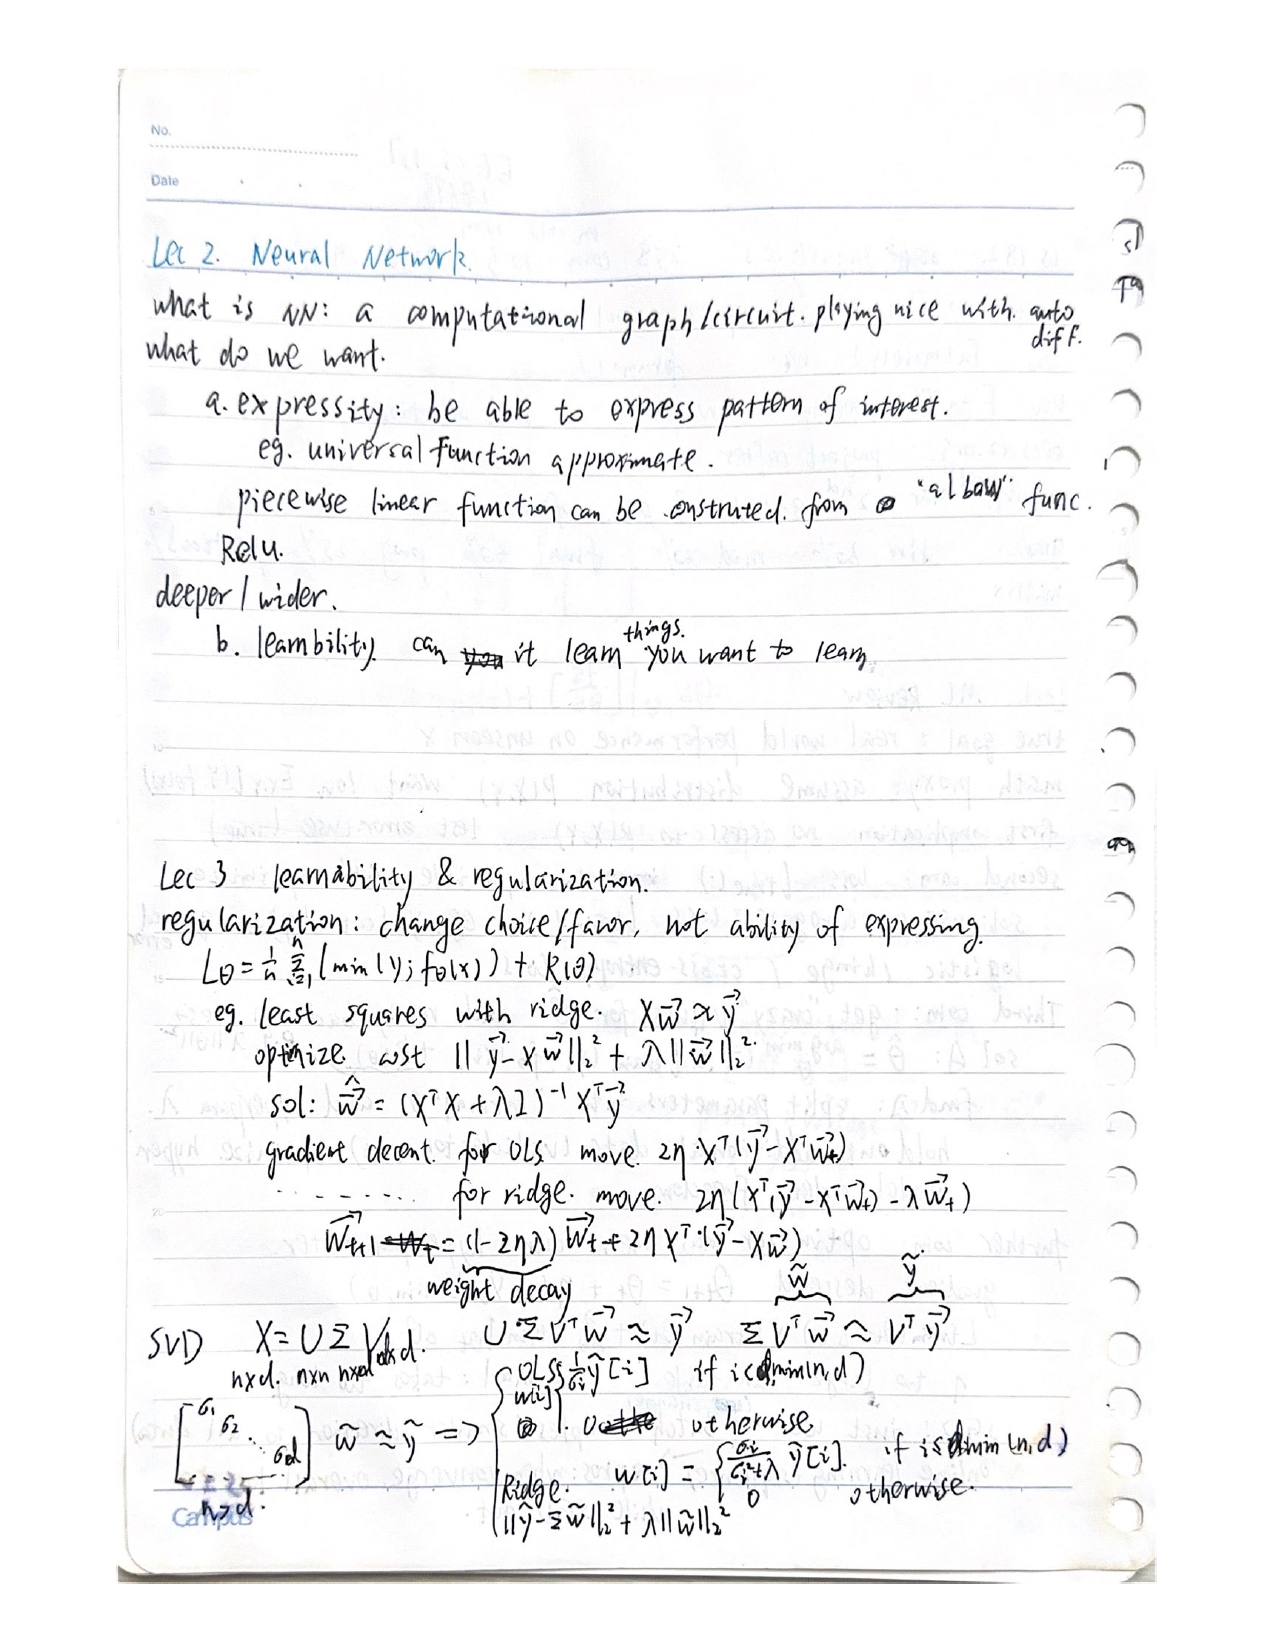 No.
Date
Lec 2. Neural Network.
what is NN: a computational graph/circuit. playing nice with. auto diff.
what do we want.
a. expressity: be able to express pattern of interest.
eg. universal function approximate.
piecewise linear function can be onstruted. from "albow" func.
Relu.
deeper / wider.
b. learnbility. can it learn things. you want to learn
Lec 3 learnability & regularization.
regularization: change choice/favor, not ability of expressing.
Lθ = 1/n Σ_{i=1}^{n} (min(y; fθ(x)) + R(θ)
eg. least squares with ridge. Xw⃗ ≈ y⃗
optimize cost ||y⃗ - Xw⃗||₂² + λ||w⃗||₂².
sol: ŵ⃗ = (XᵀX + λI)⁻¹ Xᵀy⃗
gradient decent. for OLS move. 2η·Xᵀ(y⃗ - Xᵀw⃗ₜ)
........ for ridge. move. 2η(Xᵀ(y⃗ - Xᵀw⃗ₜ) - λw⃗ₜ)
w⃗ₜ₊₁ = (1-2ηλ) w⃗ₜ + 2η Xᵀ·(y⃗ - Xw⃗)
weight decay w̃ ỹ
SVD X = U Σ V_{d×d}. U Σ Vᵀ w⃗ ≈ y⃗ Σ Vᵀ w⃗ ≈ Vᵀ y⃗
n×d. n×n n×d
OLS w[i] { 1/σᵢ ỹ[i] if i≤min(n,d)
0 otherwise
[σ₁ σ₂ ⋱ σd] w̃ ≈ ỹ =>
Ridge. w[i] = { σᵢ/(σᵢ²+λ) ỹ[i]. if i≤min(n,d)
0 otherwise.
n>d.
||ỹ - Σw̃||₂² + λ||w̃||₂²
Campus